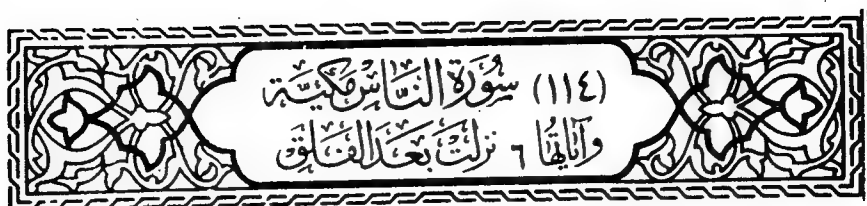 (١١٤) سُورَة النَّاسِ مَكيَّة
وآياتها ٦ نزلت بَعد الفَلق